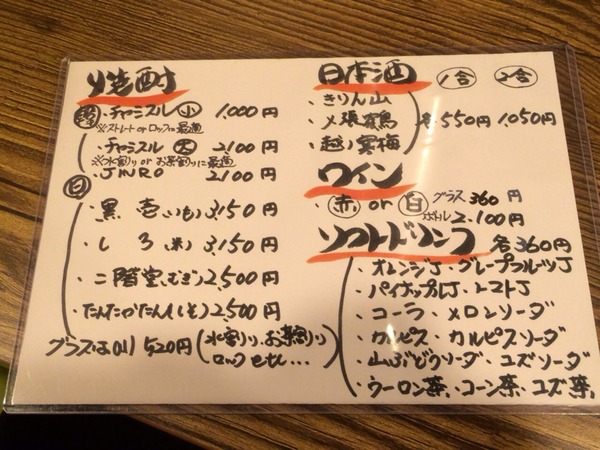 焼酎
・チャミスル 小 1,000円
※ストレート or ロックに最適
・チャミスル 大 2,100円
※水割り or お茶割りに最適
・JINRO 2,100円
・黒壱(いも) 3,150円
・しろ(米) 3,150円
・二階堂(むぎ) 2,500円
・たんたかたん(しそ) 2,500円
グラスは(小) 520円(水割り、お茶割り
ロック etc...
日本酒 1合 2合
・きりん山
・〆張鶴 各550円 1,050円
・越の寒梅
ワイン
・赤 or 白 グラス 360円
ボトル 2,100円
ソフトドリンク 各360円
・オレンジJ・グレープフルーツJ
・パイナップルJ・トマトJ
・コーラ・メロンソーダ
・カルピス・カルピスソーダ
・山ぶどうソーダ・ユズソーダ
・ウーロン茶、コーン茶、ユズ茶、